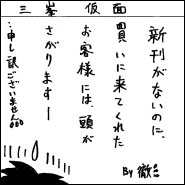 三峯仮面
新刊がないのに、
買いに来てくれた
お客様には、頭が
さがりますー
…申し訳ございません。。。
By 徹